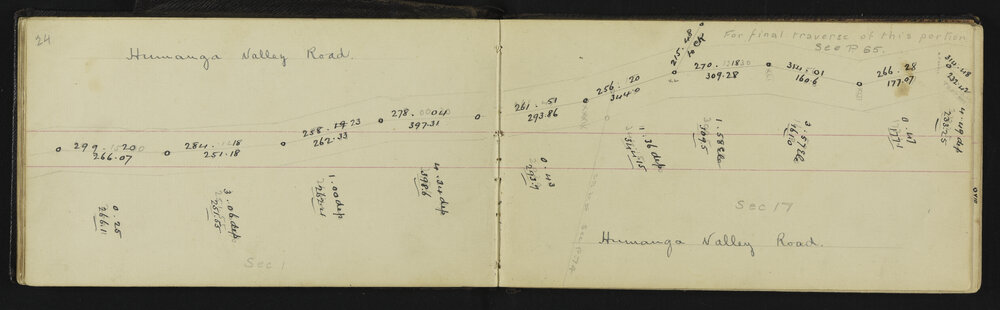 24
Humanga Valley Road.
299. 20
266.07
284. 18
251.18
288. 23
262.33
278. 04
397.31
0.25
266.11
3.06 dep
251.55
1.00 dep
262.41
4.34 dep
398.6
Sec 1
For final traverse of this portion
See P 65.
261. 51
293.86
256. 20
344.0
215.48
to CK
270. 30
309.28
314. 01
160.6
266. 28
177.07
314.48
232.42
0.43
293.9
1.36 dep
344.15
1.58
309.5
3.57
161.0
0.47
177.1
4.49 dep
233.25
Sec 17
Humanga Valley Road.